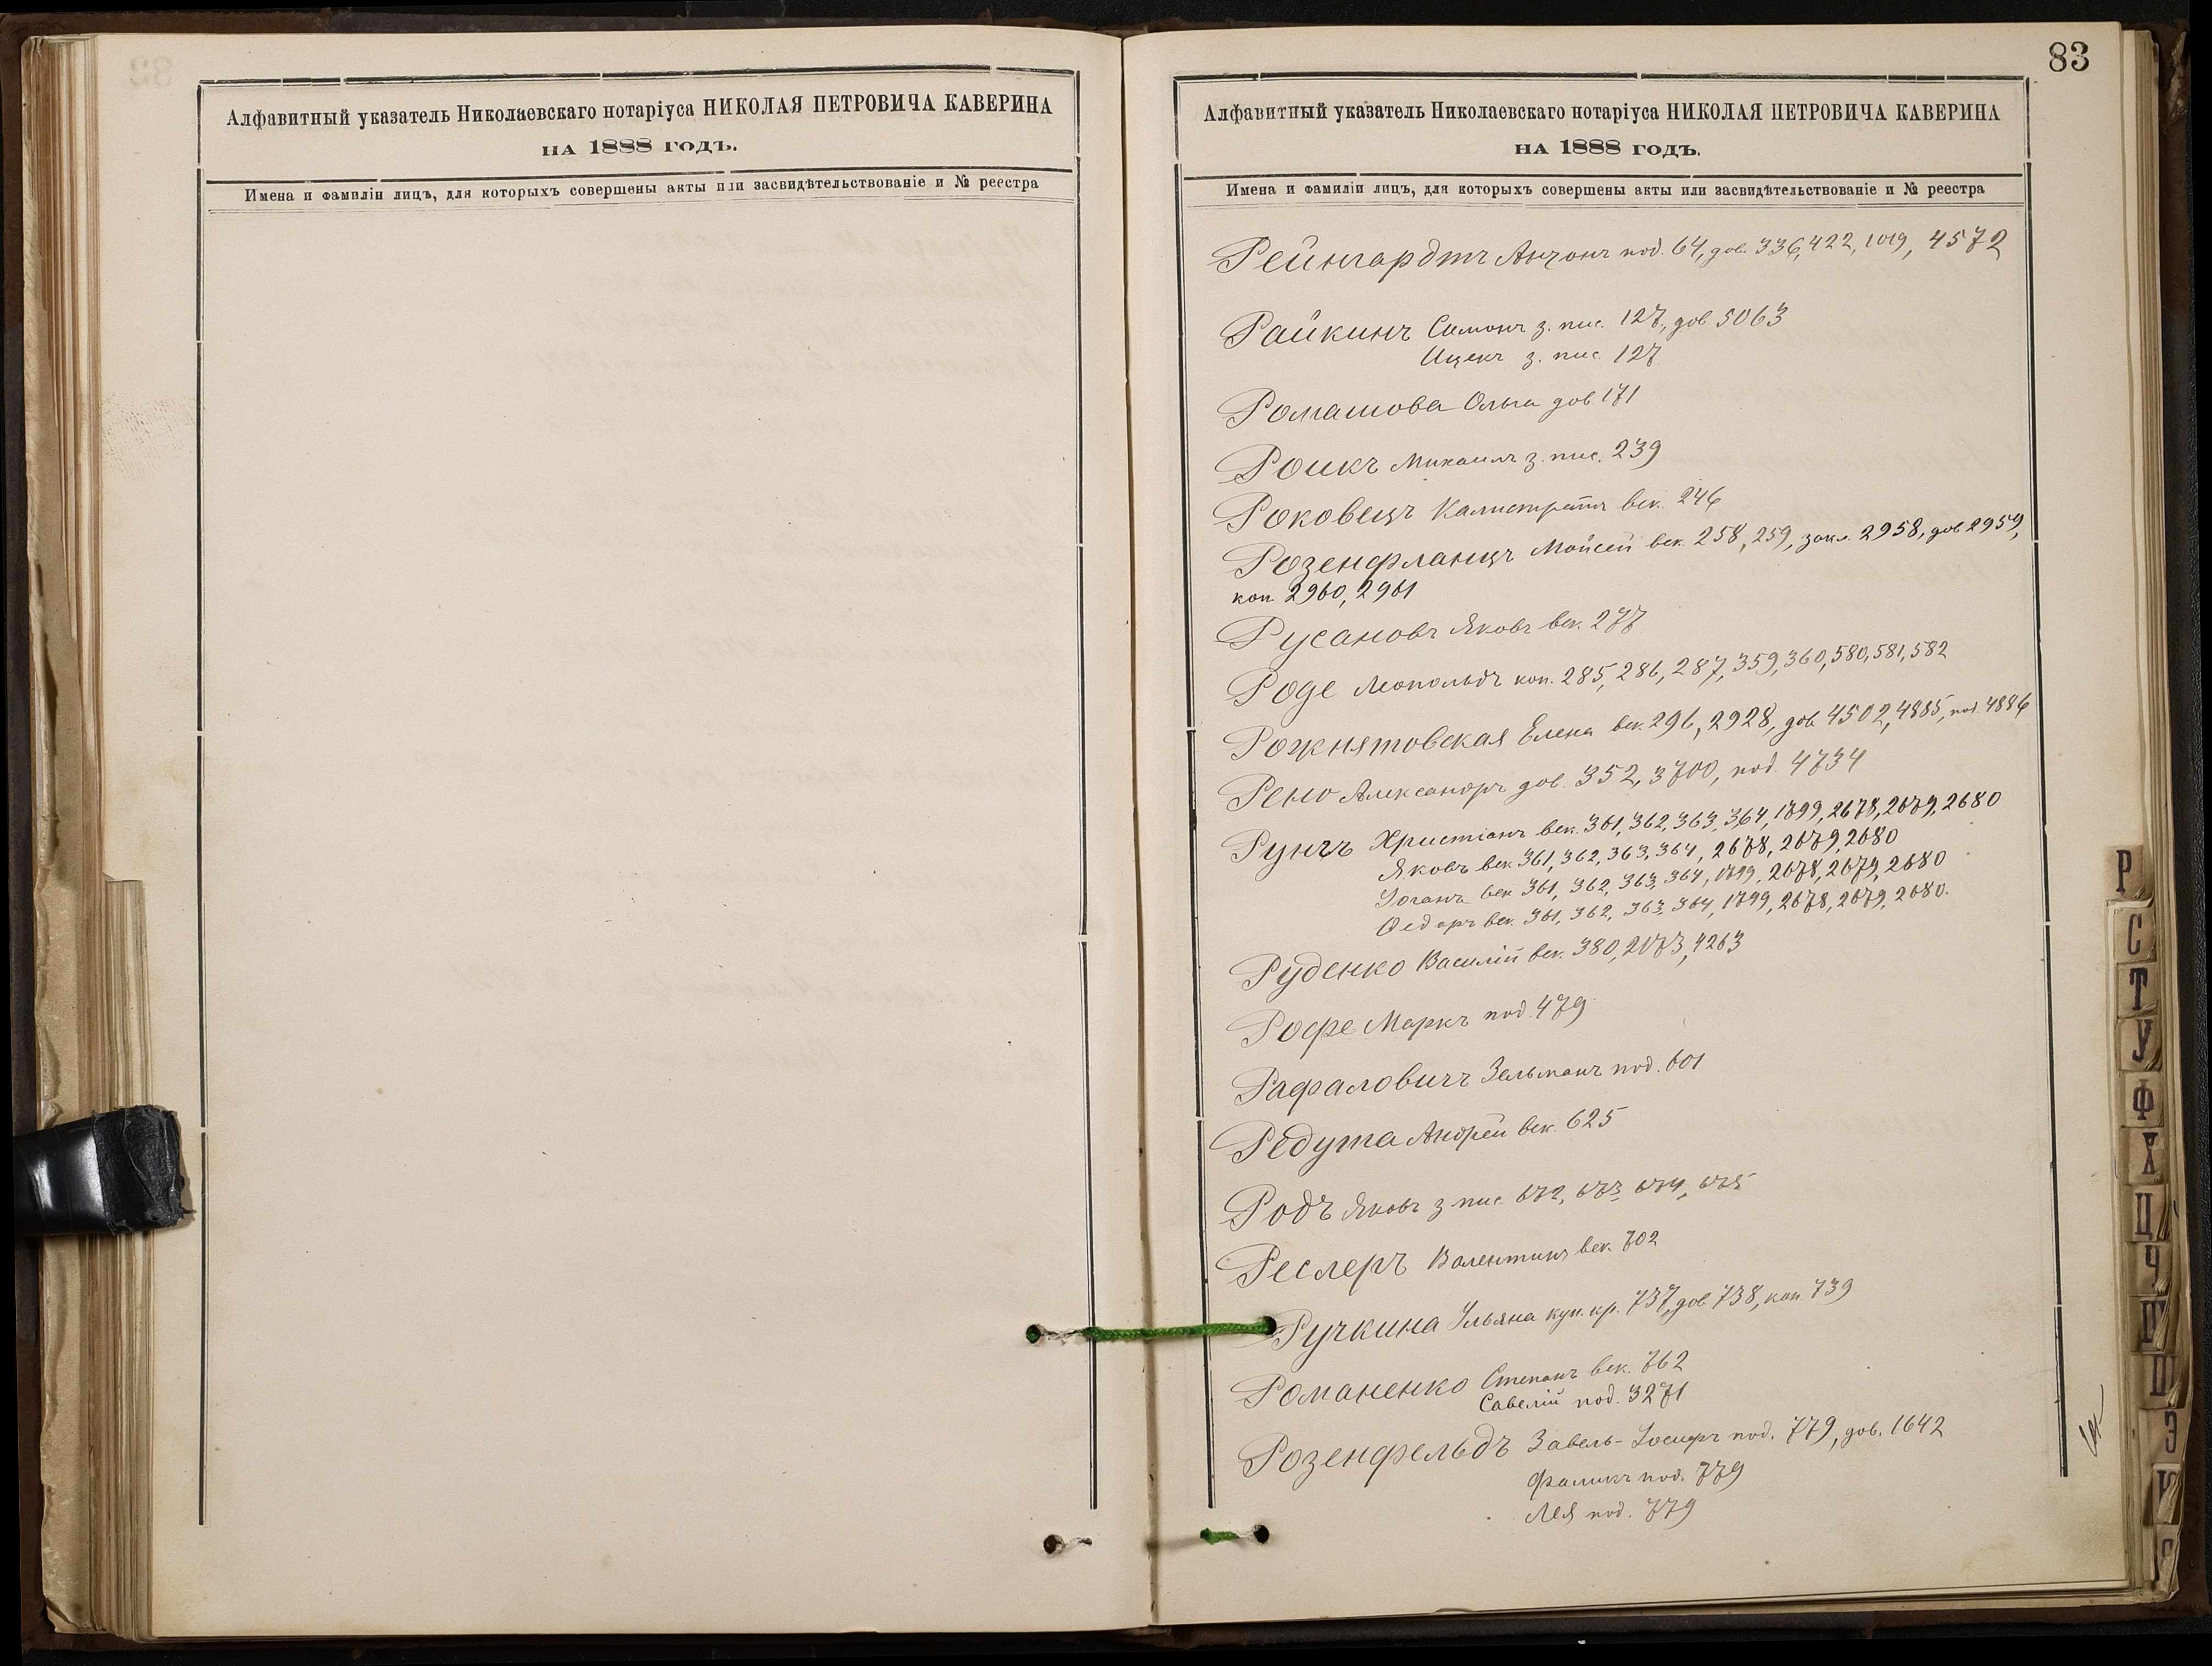 Алфавитный указатель Николаевскаго нотаріуса НИКОЛАЯ ПЕТРОВИЧА КАВЕРИНА
НА 1888 ГОДЪ.
Имена и фамиліи лицъ, для которыхъ совершены акты или засвидѣтельствованіе и № реестра
83
Алфавитный указатель Николаевскаго нотаріуса НИКОЛАЯ ПЕТРОВИЧА КАВЕРИНА
НА 1888 ГОДЪ.
Имена и фамиліи лицъ, для которыхъ совершены акты или засвидѣтельствованіе и № реестра
Рейнгардтъ Антонъ под. 64, дов. 336, 422, 1019, 4572
Райкинъ Симонъ з. пис. 127, дов. 5063
Ицекъ з. пис. 127
Ромашова Ольга дов. 171
Роикъ Михаилъ з. пис. 239
Роковецъ Калистратъ век. 246
Розенфланцъ Мойсей век. 258, 259, закл. 2958, дов 2959,
коп. 2960, 2961
Русановъ Яковъ век. 277
Роде Леопольдъ коп. 285, 286, 287, 359, 360, 580, 581, 582
Рожнятовская Елена век. 296, 2928, дов. 4502, 4885, под. 4886
Рено Александръ дов. 352, 3700, под. 4734
Рунгъ Христіанъ век. 361, 362, 363, 364, 1799, 2678, 2679, 2680
Яковъ век. 361, 362, 363, 364, 2678, 2679, 2680
Іоганъ век. 361, 362, 363, 364, 1799, 2678, 2679, 2680
Ѳедоръ век. 361, 362, 363, 364, 1799, 2678, 2679, 2680.
Руденко Василій век. 380, 2173, 4263
Рофе Маркъ под. 479
Рафаловичъ Зельманъ под. 601
Редута Андрей век. 625
Родъ Яковъ з. пис. 672, 673, 674, 675
Реслеръ Валентинъ век. 702
Ручкина Ульяна куп. кр. 737, дов. 738, коп. 739
Романенко Степанъ век. 762
Савелій под. 3271
Розенфельдъ Завель-Іосифъ под. 779, дов. 1642
Фаликъ под. 779
Лея под. 779
Р
С
Т
У
Ф
Х
Ц
Ч
Ш
Щ
Э